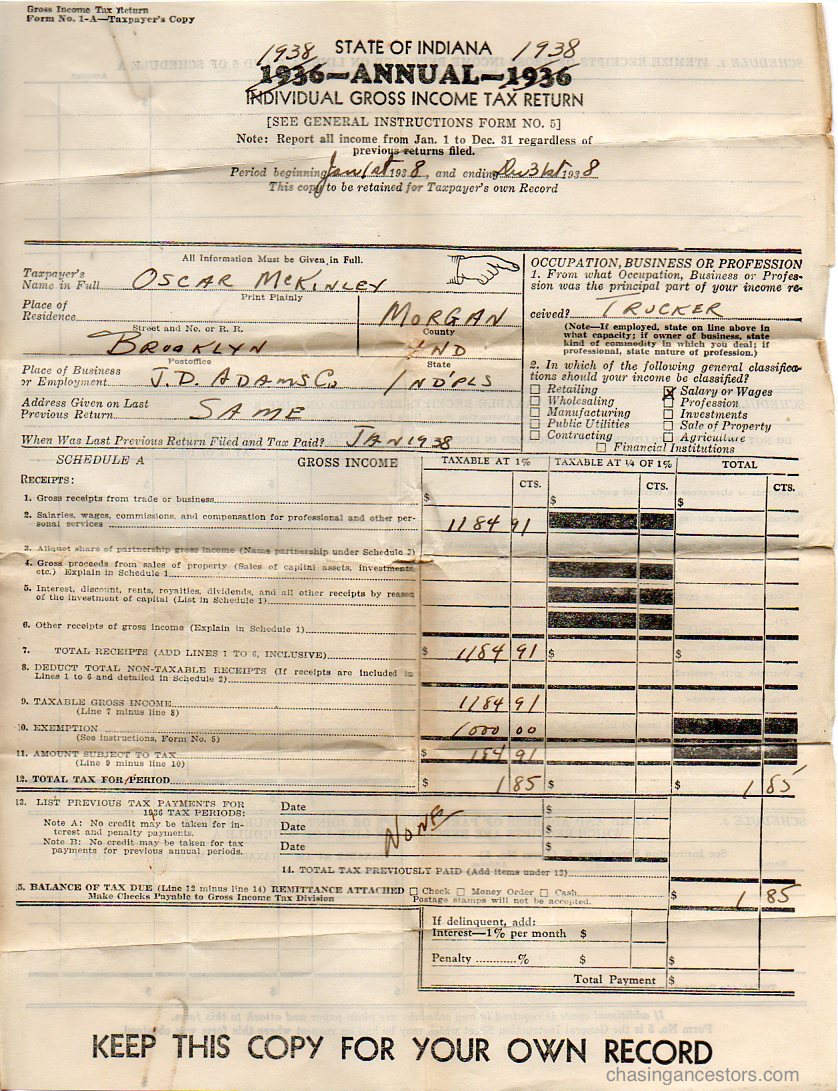 Gross Income Tax Return
Form No. 1-A—Taxpayer's Copy
STATE OF INDIANA
1938 1938
1936—ANNUAL—1936
INDIVIDUAL GROSS INCOME TAX RETURN
[SEE GENERAL INSTRUCTIONS FORM NO. 5]
Note: Report all income from Jan. 1 to Dec. 31 regardless of
previous returns filed.
Period beginning Jan 1st 1938, and ending Dec 31st 1938
This copy to be retained for Taxpayer's own Record
All Information Must be Given in Full.
Taxpayer's
Name in Full OSCAR McKINLEY
Print Plainly
Place of
Residence MORGAN
Street and No. or R. R. County
BROOKLYN IND
Postoffice State
Place of Business
or Employment J.D. ADAMS Co IND'PLS
Address Given on Last
Previous Return SAME
When Was Last Previous Return Filed and Tax Paid? JAN 1938
OCCUPATION, BUSINESS OR PROFESSION
1. From what Occupation, Business or Profes-
sion was the principal part of your income re-
ceived? TRUCKER
(Note—If employed, state on line above in
what capacity; if owner of business, state
kind of commodity in which you deal; if
professional, state nature of profession.)
2. In which of the following general classifica-
tions should your income be classified?
Retailing Salary or Wages
Wholesaling Profession
Manufacturing Investments
Public Utilities Sale of Property
Contracting Agriculture
Financial Institutions
SCHEDULE A GROSS INCOME TAXABLE AT 1% TAXABLE AT 1/4 OF 1% TOTAL
RECEIPTS: CTS. CTS. CTS.
1. Gross receipts from trade or business $ $ $
2. Salaries, wages, commissions, and compensation for professional and other per-
sonal services 1184 91
3. Aliquot share of partnership gross income (Name partnership under Schedule 3)
4. Gross proceeds from sales of property (Sales of capital assets, investments,
etc.) Explain in Schedule 1
5. Interest, discount, rents, royalties, dividends, and all other receipts by reason
of the investment of capital (List in Schedule 1)
6. Other receipts of gross income (Explain in Schedule 1)
7. TOTAL RECEIPTS (ADD LINES 1 TO 6, INCLUSIVE) $ 1184 91 $ $
8. DEDUCT TOTAL NON-TAXABLE RECEIPTS (If receipts are included in
Lines 1 to 6 and detailed in Schedule 2)
9. TAXABLE GROSS INCOME 1184 91
(Line 7 minus line 8)
10. EXEMPTION 1000 00
(See instructions, Form No. 5)
11. AMOUNT SUBJECT TO TAX $ 184 91
(Line 9 minus line 10)
12. TOTAL TAX FOR PERIOD $ 1 85 $ $ 1 85
13. LIST PREVIOUS TAX PAYMENTS FOR
1936 TAX PERIODS:
Note A: No credit may be taken for in-
terest and penalty payments.
Note B: No credit may be taken for tax
payments for previous annual periods.
Date $
Date None $
Date $
14. TOTAL TAX PREVIOUSLY PAID (Add items under 13)
15. BALANCE OF TAX DUE (Line 12 minus line 14) REMITTANCE ATTACHED Check Money Order Cash $ 1 85
Make Checks Payable to Gross Income Tax Division Postage stamps will not be accepted.
If delinquent, add:
Interest—1% per month $
Penalty ............% $ $
Total Payment $
KEEP THIS COPY FOR YOUR OWN RECORD
chasingancestors.com